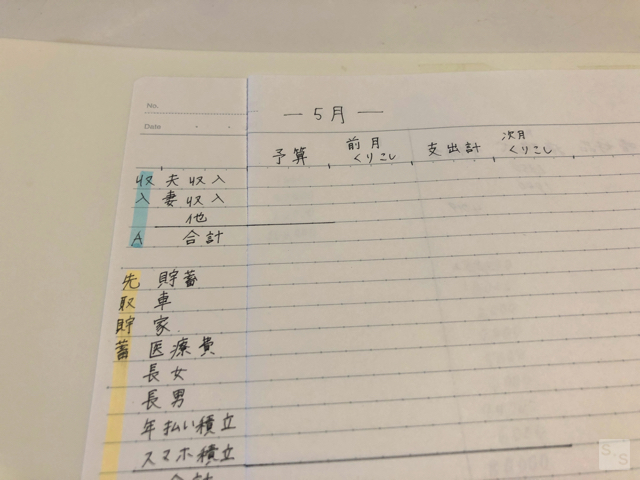 No.
Date
— 5月 —
予算 前月くりこし 支出計 次月くりこし
収 夫収入
入 妻収入
他
A 合計
先 貯蓄
取 車
貯 家
蓄 医療費
長女
長男
年払い積立
スマホ積立
合計
S.S